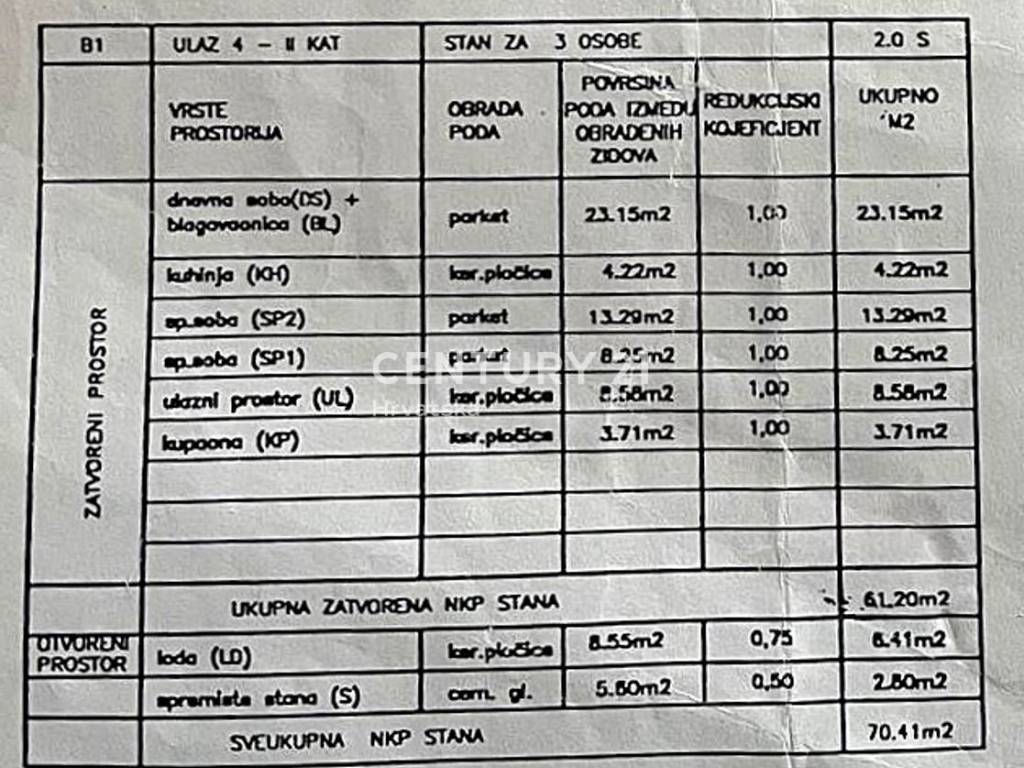 B1 ULAZ 4 - II KAT STAN ZA 3 OSOBE 2.0 S
VRSTE PROSTORIJA
OBRADA PODA
POVRSINA PODA IZMEDU OBRADENIH ZIDOVA
REDUKCIJSKI KOJEFICJENT
UKUPNO M2
ZATVORENI PROSTOR
dnevna soba(DS) +
blagovaonica (BL) parket 23.15m2 1,00 23.15m2
kuhinja (KH) ker.pločice 4.22m2 1,00 4.22m2
sp.soba (SP2) parket 13.29m2 1,00 13.29m2
sp.soba (SP1) parket 8.25m2 1,00 8.25m2
ulazni prostor (UL) ker.pločice 8.58m2 1,00 8.58m2
kupaona (KP) ker.pločice 3.71m2 1,00 3.71m2
UKUPNA ZATVORENA NKP STANA 61.20m2
OTVORENI PROSTOR
loda (LD) ker.pločice 8.55m2 0,75 6.41m2
spremiste stana (S) cem. gl. 5.60m2 0,50 2.80m2
SVEUKUPNA NKP STANA 70.41m2
CENTURY 21
Hrvatska